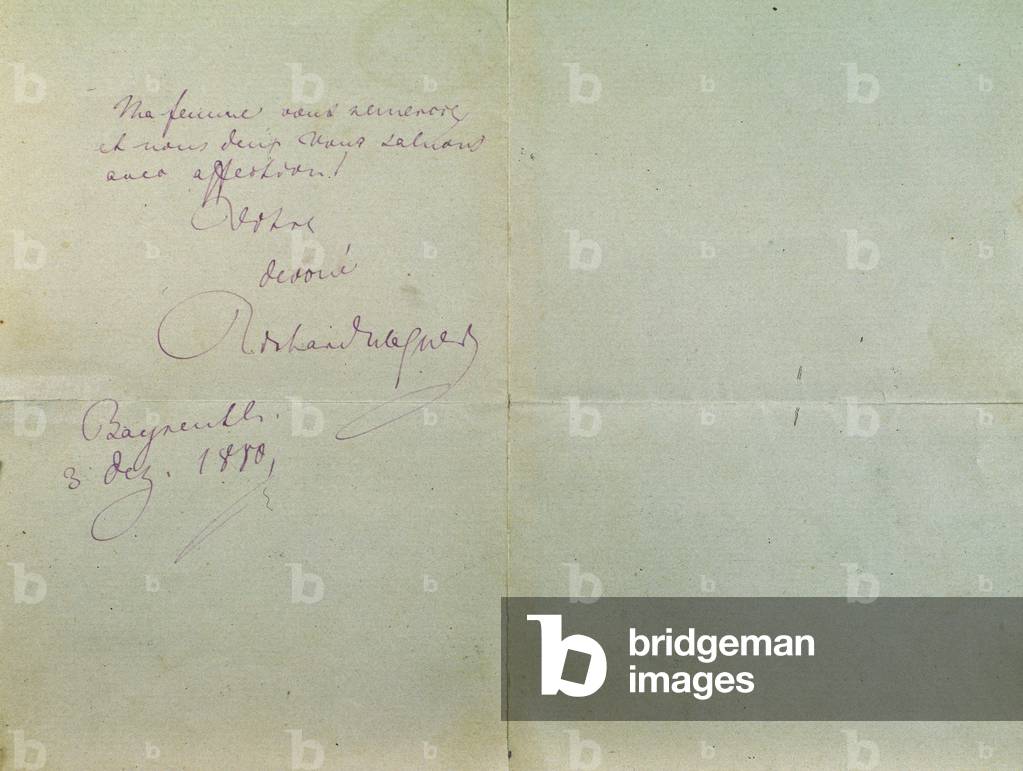 Ma femme vous remercie
et nous deux vous saluons
avec affection!
Votre
devoué
Richard Wagner
Bayreuth.
3 Dez. 1880,
bridgeman
images